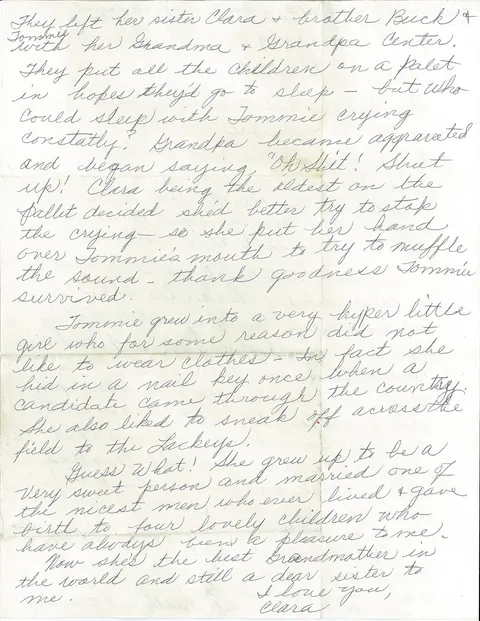 They left her sister Clara & brother Buck &
Tommie
with her Grandma & Grandpa Center.
They put all the children on a palet
in hopes they'd go to sleep - but who
could sleep with Tommie crying
constatly? Grandpa became apparated
and began saying, "Oh Shit! Shut
up! Clara being the oldest on the
pallet decided she'd better try to stop
the crying - so she put her hand
over Tommie's mouth to try to muffle
the sound - thank goodness Tommie
survived.
Tommie grew into a very hyper little
girl who for some reason did not
like to wear clothes - In fact she
hid in a nail keg once when a
candidate came through the country.
She also liked to sneak off across the
field to the Lackeys.
Guess What! She grew up to be a
very sweet person and married one of
the nicest men who ever lived & gave
birth to four lovely children who
have always been a pleasure to me.
Now she's the best Grandmother in
the world and still a dear sister to
me.
I love you,
Clara